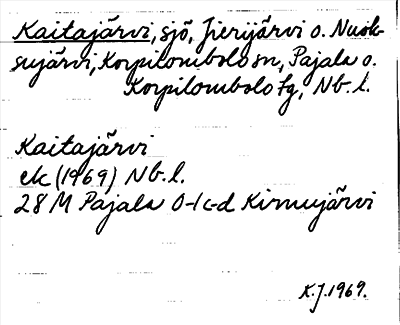 Kaitajärvi, sjö, Jierijärvi o. Nuok-
sujärvi, Korpilombolo sn, Pajala o.
Korpilombolo tg, Nb. l.
Kaitajärvi
ek (1969) Nb. l.
28 M Pajala 0-1 c-d Kirnujärvi
K.J. 1969.